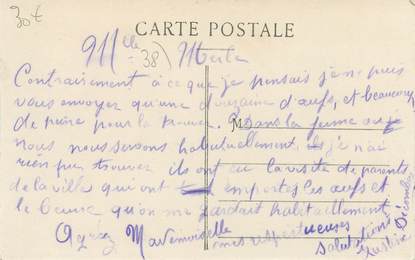 30t
CARTE POSTALE
Mlle (38) Merle
Contrairement à ce que je pensais je ne puis
vous envoyez qu'une douzaine d'œufs, et beaucoup
de peine pour la trouver. Dans la ferme où je
M
nous nous servons habituellement, je n'ai
rien pu trouver ils ont eu la visite de parents
de la ville qui ont emportés les œufs et
le beurre qu'on me gardait habituellement
Agréez Mademoiselle
mes respectueuses
salutations
Gustave